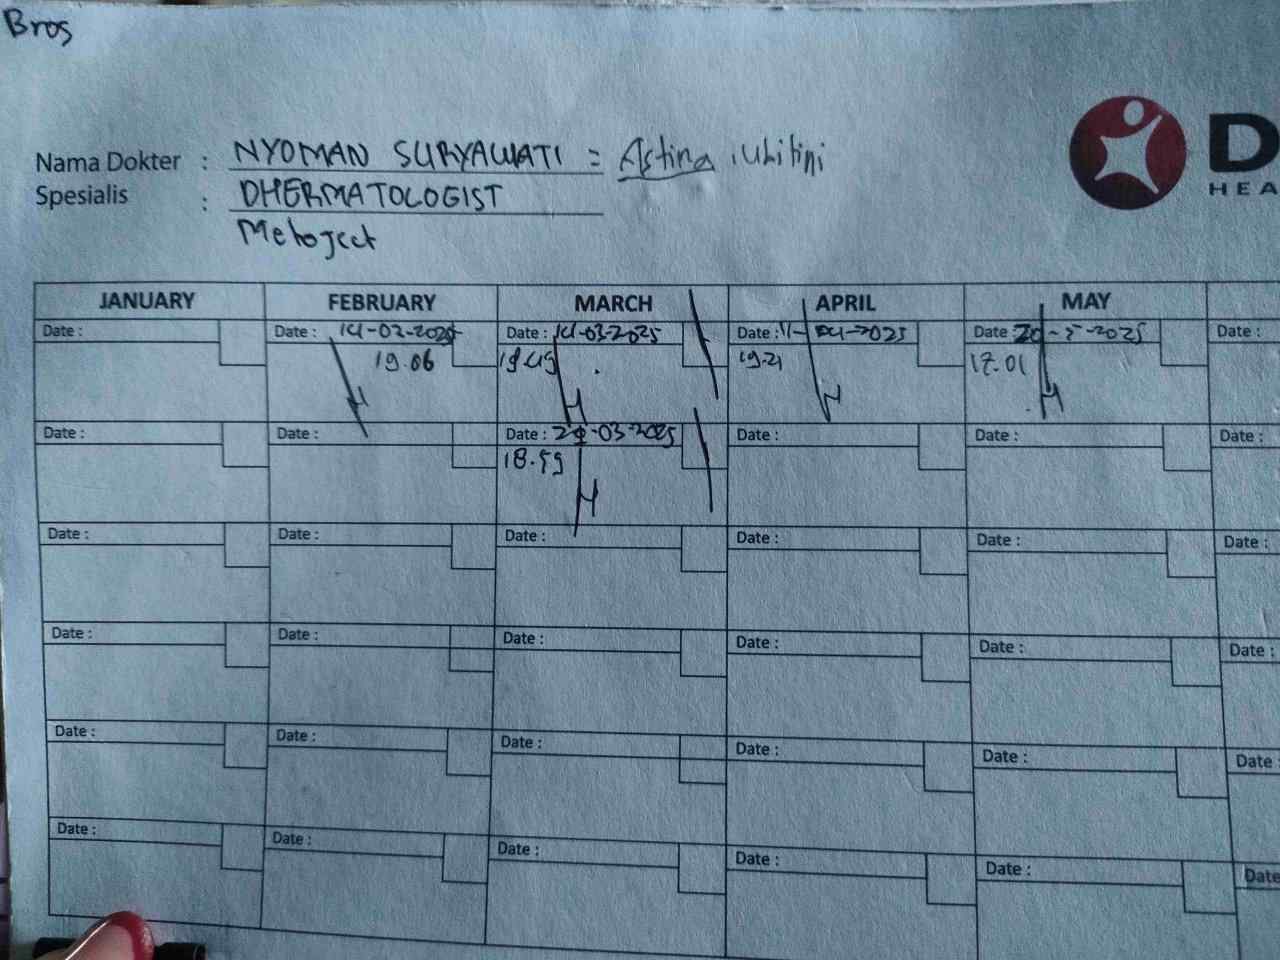 Bros
Nama Dokter : NYOMAN SURYAWATI = Astina
Spesialis : DHERMATOLOGIST
Metoject
D
HEA
JANUARY FEBRUARY MARCH APRIL MAY
Date : Date : 14-02-2025 Date : 14-03-2025 Date : 11-04-2025 Date 20-5-2025 Date :
19.06 19.49 19.21 17.01
Date : Date : Date : 29-03-2025 Date : Date : Date :
18.59
Date : Date : Date : Date : Date : Date :
Date : Date : Date : Date : Date : Date :
Date : Date : Date : Date : Date : Date :
Date : Date : Date : Date : Date : Date